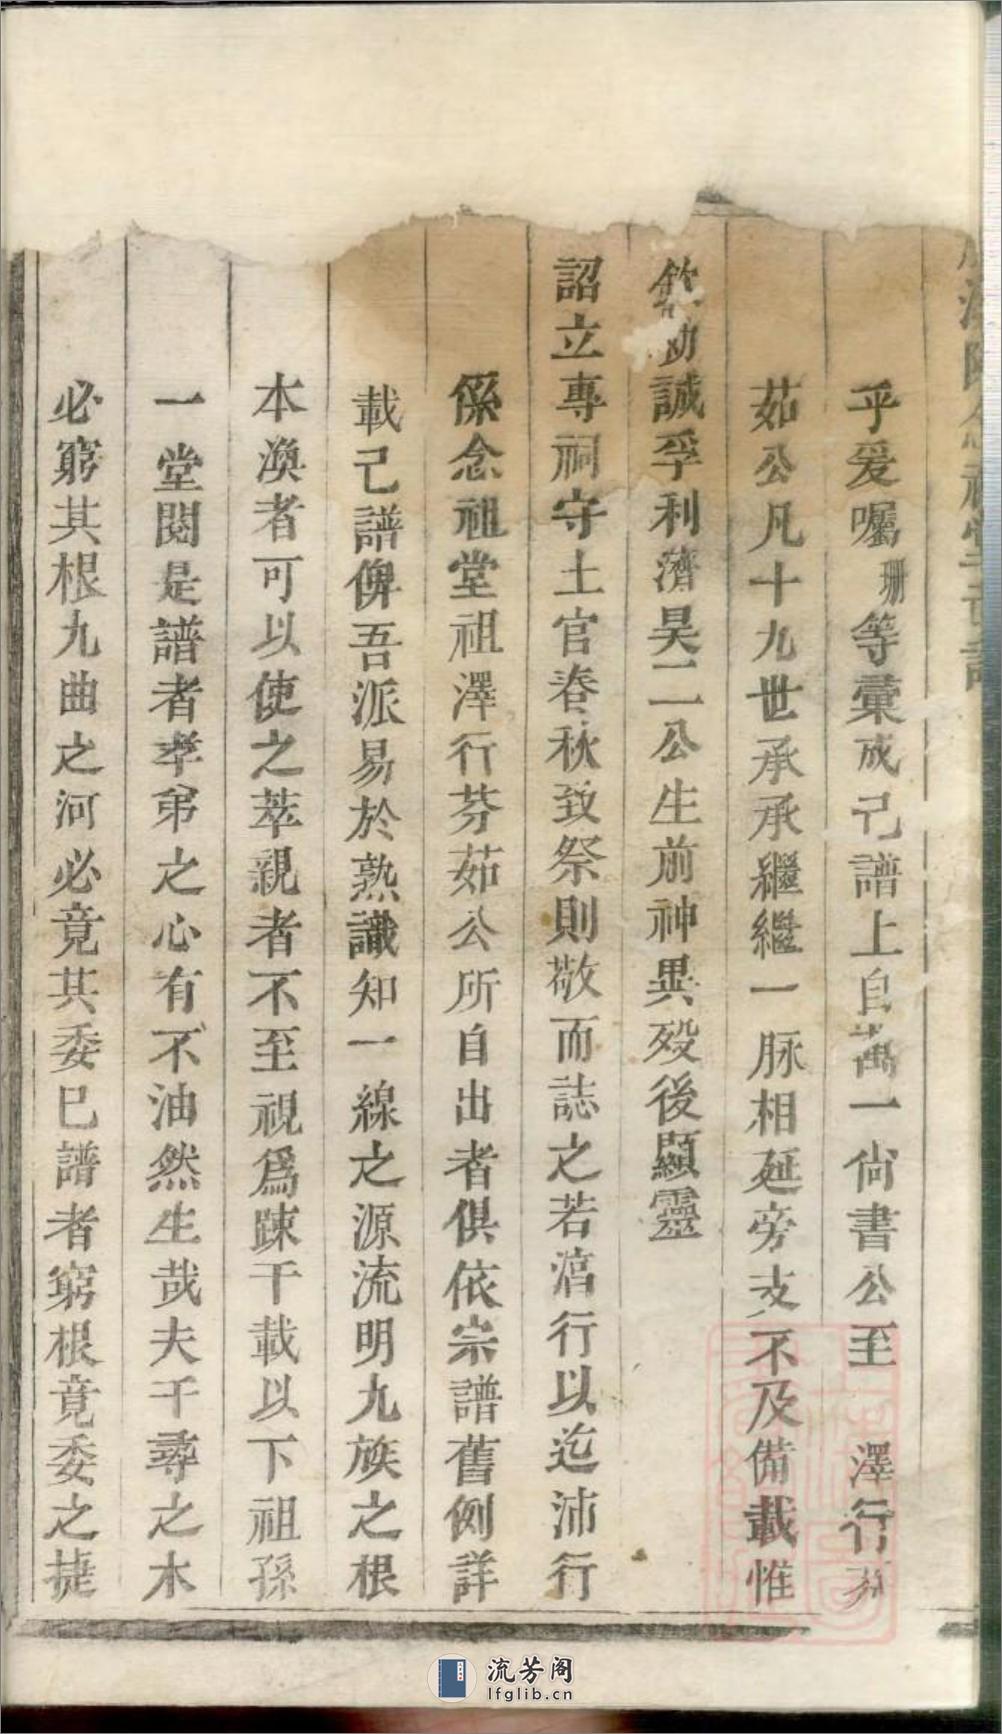 乎爰囑珊等彙成己譜上自萬一尙書公至　澤行芬
茹公凡十九世承承繼繼一脉相延旁支不及備載惟
欽劭誠孚利濟昊二公生前神異殁後顯靈
詔立專祠守土官春秋致祭則敬而誌之若濱行以迄沛行
係念祖堂祖澤行芬茹公所自出者俱依宗譜舊例詳
載己譜俾吾派易於熟識知一線之源流明九族之根
本渙者可以使之萃親者不至視爲踈千載以下祖孫
一堂閱是譜者孝弟之心有不油然生哉夫千尋之木
必窮其根九曲之河必竟其委已譜者窮根竟委之捷
流芳阁
lfglib.cn